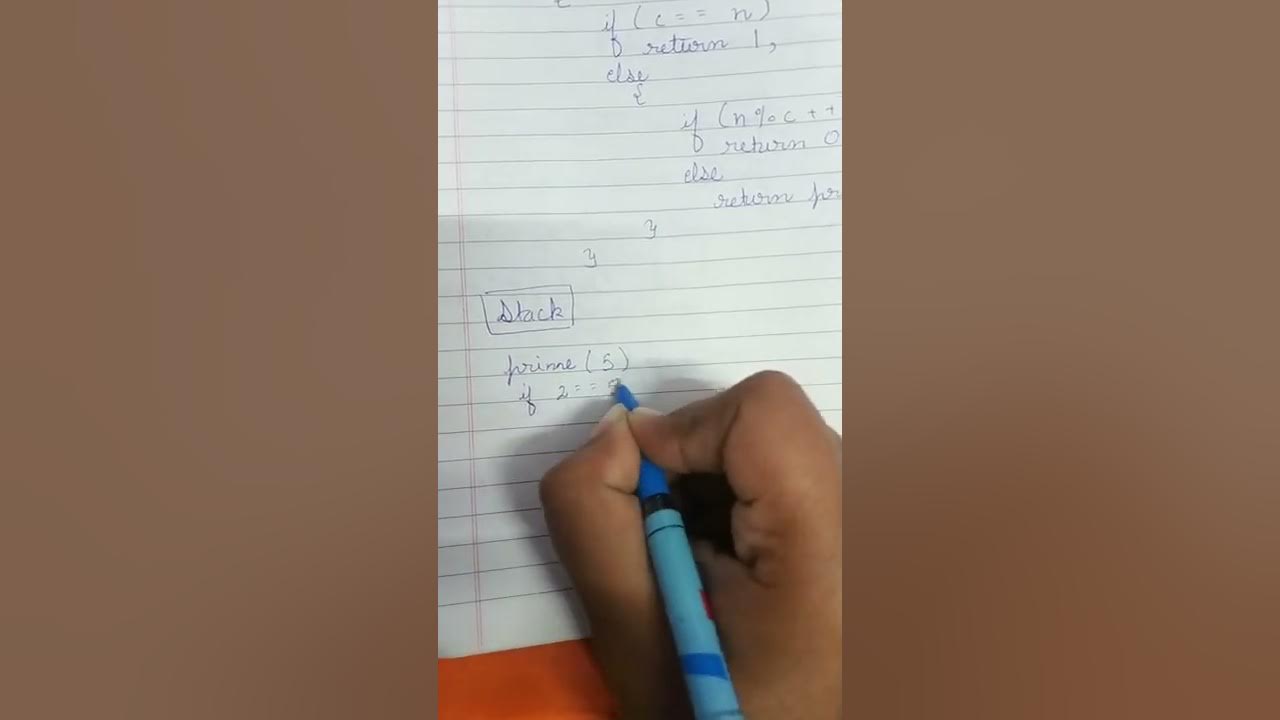 {
if ( c = = n )
return 1,
else
{
if (n % c + +
return 0
else
return pr
}
}
Stack
prime ( 5 )
if 2 = =